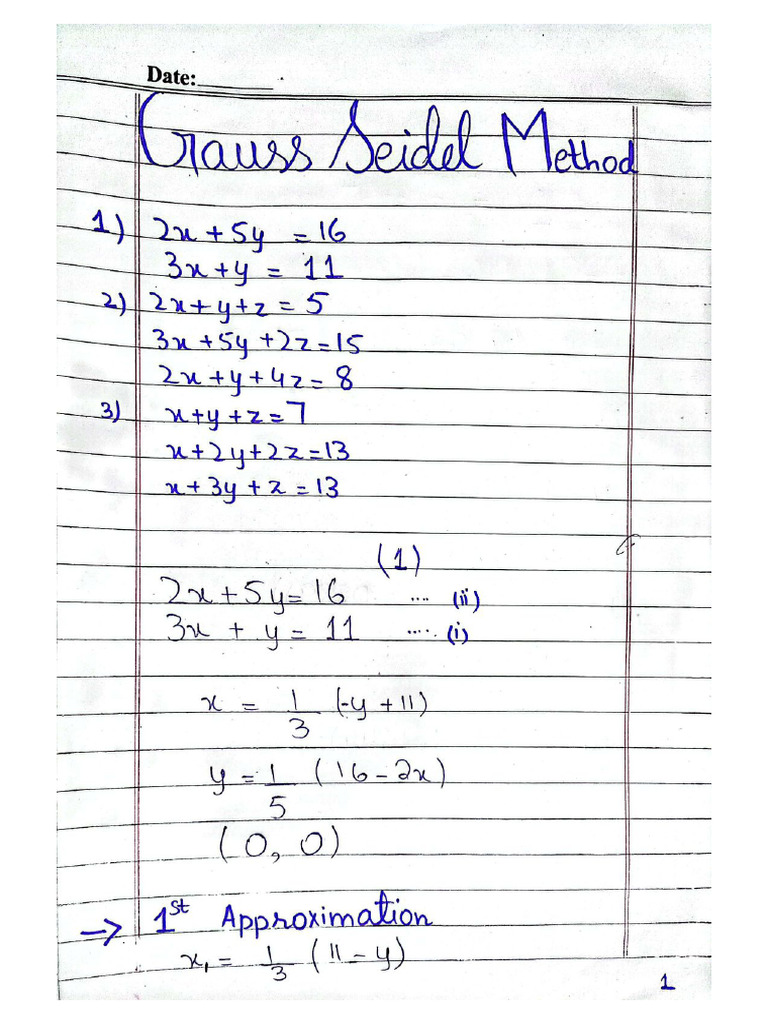 Date:______
Gauss Seidel Method
1) 2x + 5y = 16
3x + y = 11
2) 2x + y + z = 5
3x + 5y + 2z = 15
2x + y + 4z = 8
3) x + y + z = 7
x + 2y + 2z = 13
x + 3y + z = 13
(1)
2x + 5y = 16 .... (ii)
3x + y = 11 ..... (i)
x = 1/3 (-y + 11)
y = 1/5 (16 - 2x)
(0, 0)
→ 1st Approximation
x₁ = 1/3 (11 - y)
1